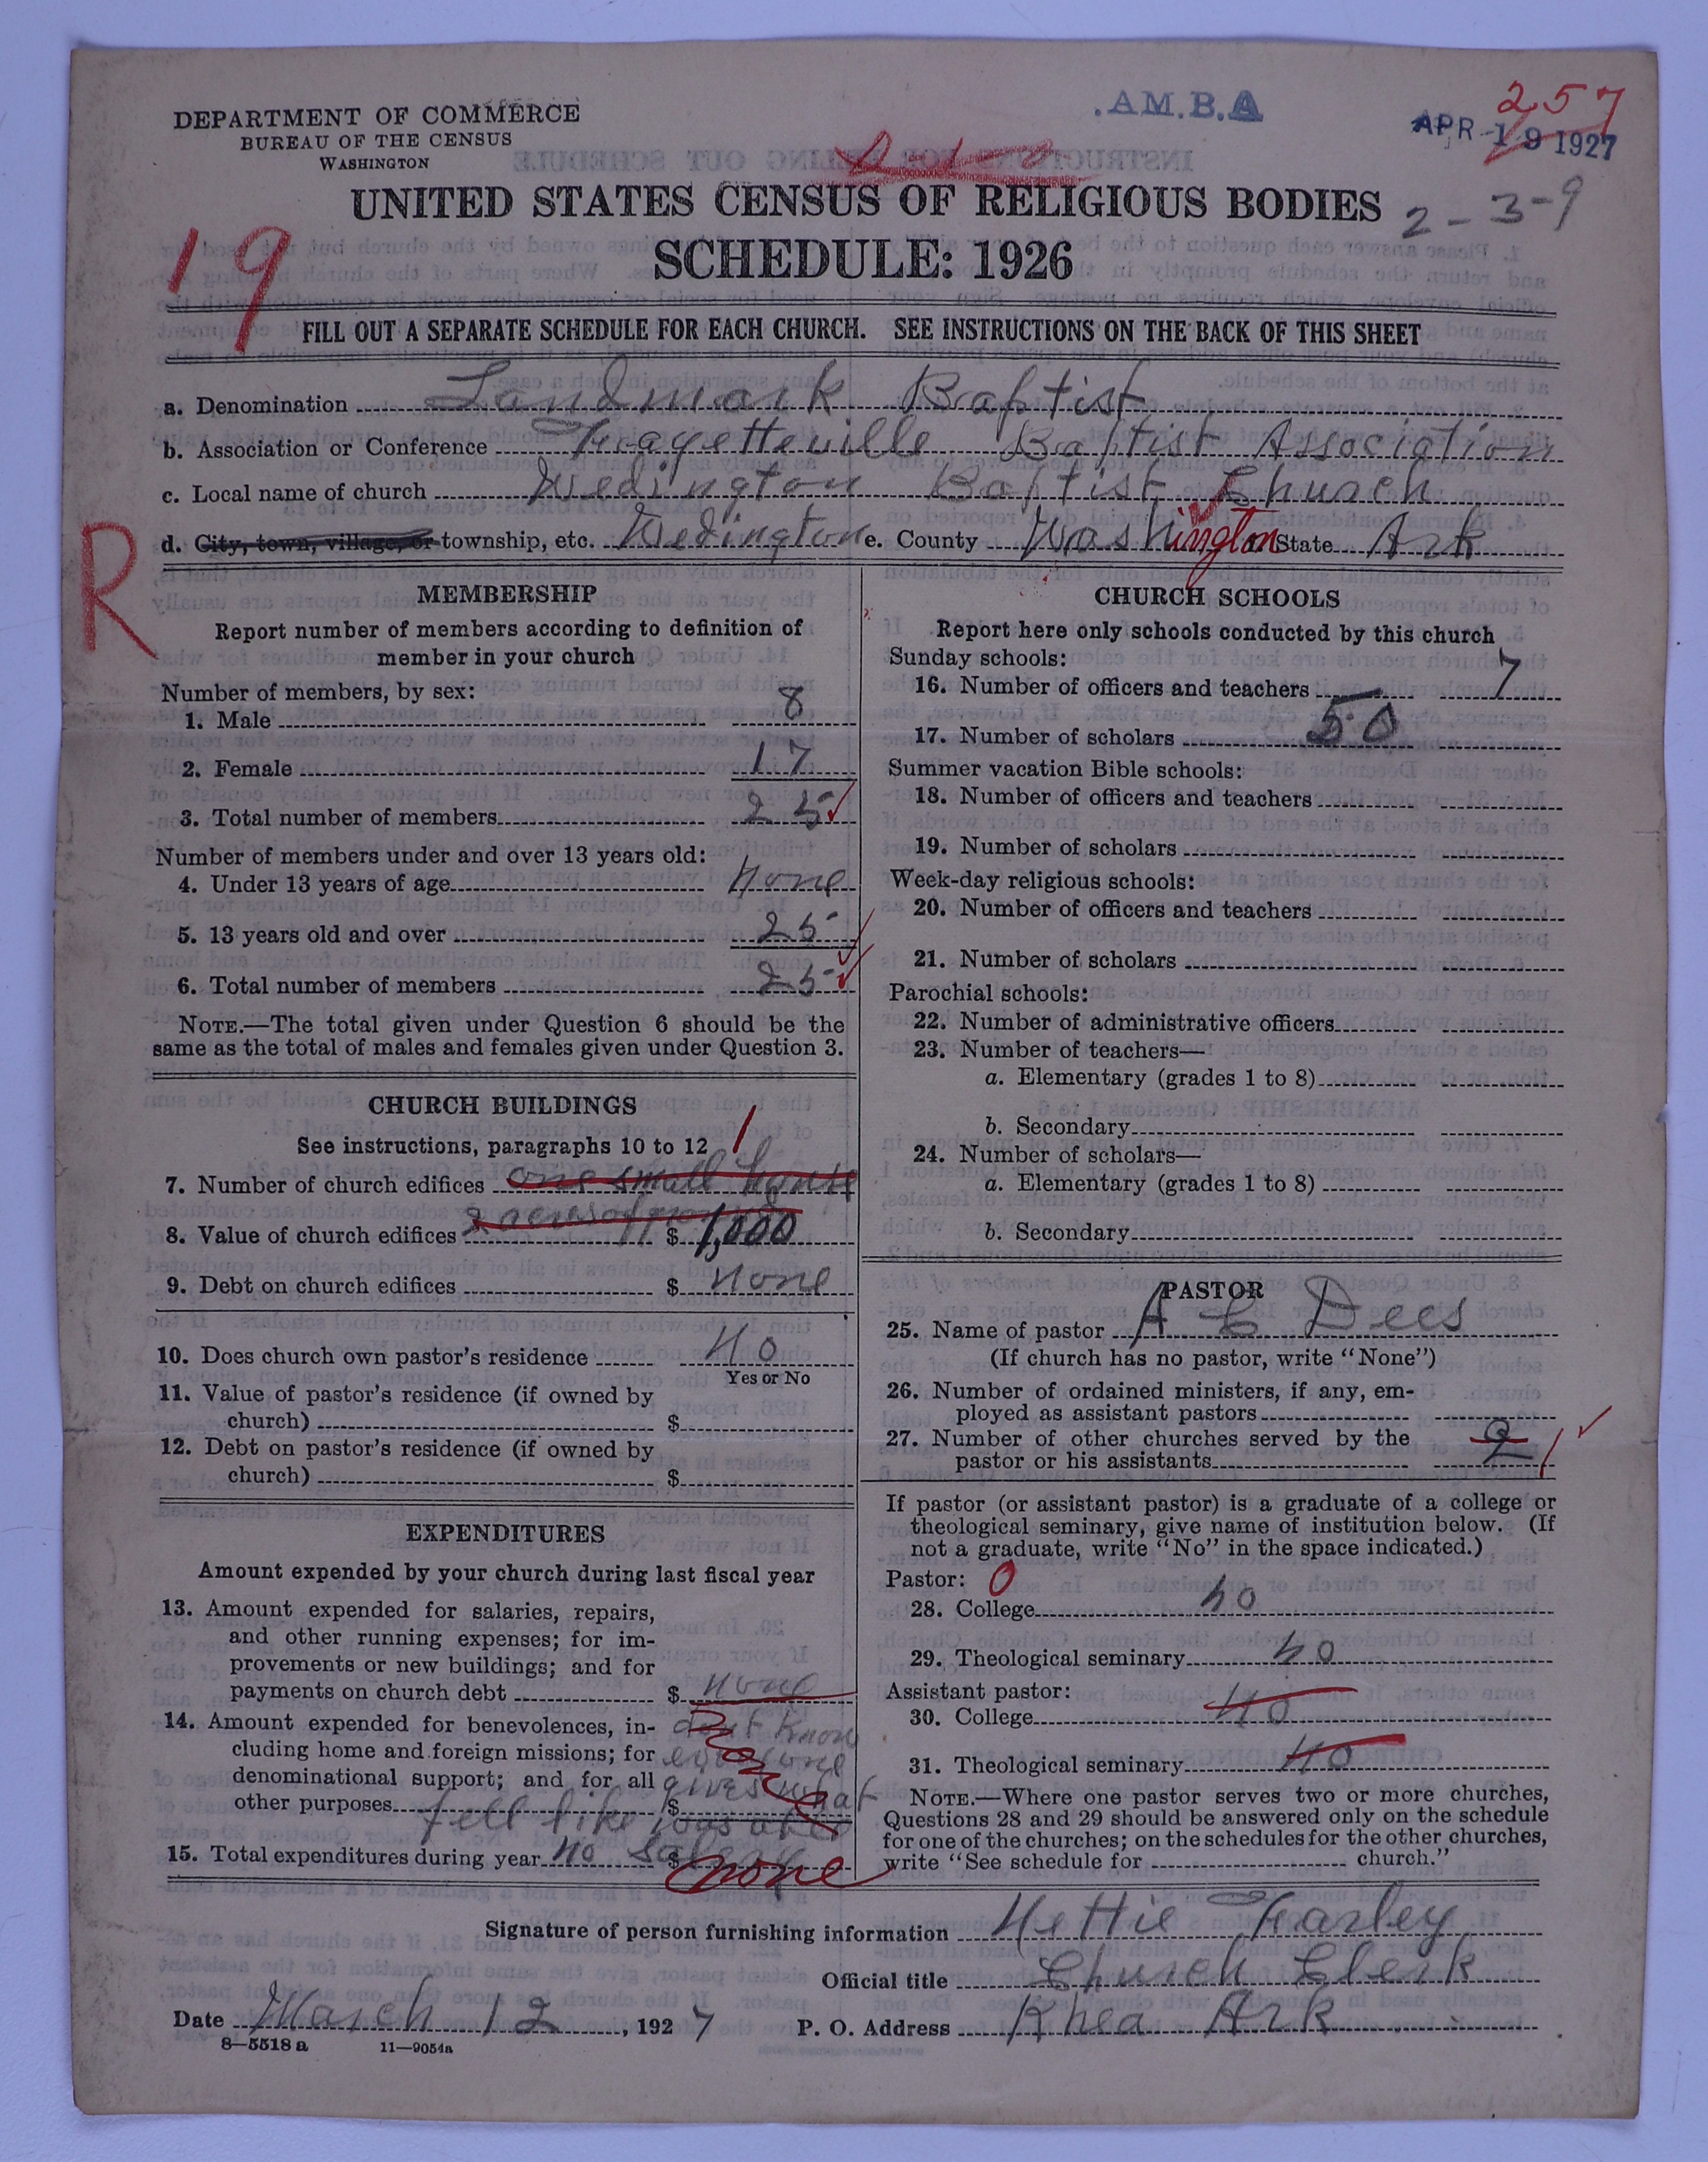 DEPARTMENT OF COMMERCE
BUREAU OF THE CENSUS
WASHINGTON
.AM.B.A
257
APR 19 1927
2-3-9
UNITED STATES CENSUS OF RELIGIOUS BODIES
SCHEDULE: 1926
19
FILL OUT A SEPARATE SCHEDULE FOR EACH CHURCH. SEE INSTRUCTIONS ON THE BACK OF THIS SHEET
a. Denomination Landmark Baptist
b. Association or Conference Fayetteville Baptist Association
c. Local name of church Wedington Baptist Church
R
d. City, town, village, or township, etc. Wedington e. County Washington State Ark
MEMBERSHIP
Report number of members according to definition of
member in your church
Number of members, by sex:
1. Male 8
2. Female 17
3. Total number of members 25
Number of members under and over 13 years old:
4. Under 13 years of age None
5. 13 years old and over 25
6. Total number of members 25
NOTE.—The total given under Question 6 should be the
same as the total of males and females given under Question 3.
CHURCH BUILDINGS
See instructions, paragraphs 10 to 12
1
7. Number of church edifices one small house
2 acres of ground
8. Value of church edifices $ 1,000
9. Debt on church edifices $ None
10. Does church own pastor's residence No
Yes or No
11. Value of pastor's residence (if owned by
church) $
12. Debt on pastor's residence (if owned by
church) $
EXPENDITURES
Amount expended by your church during last fiscal year
13. Amount expended for salaries, repairs,
and other running expenses; for im-
provements or new buildings; and for
payments on church debt $ None
14. Amount expended for benevolences, in- dont know
cluding home and foreign missions; for every one
denominational support; and for all gives what
other purposes $
fell like
15. Total expenditures during year no salery $ none
CHURCH SCHOOLS
Report here only schools conducted by this church
Sunday schools:
16. Number of officers and teachers 7
17. Number of scholars 50
Summer vacation Bible schools:
18. Number of officers and teachers
19. Number of scholars
Week-day religious schools:
20. Number of officers and teachers
21. Number of scholars
Parochial schools:
22. Number of administrative officers
23. Number of teachers—
a. Elementary (grades 1 to 8)
b. Secondary
24. Number of scholars—
a. Elementary (grades 1 to 8)
b. Secondary
PASTOR
25. Name of pastor A C Dees
(If church has no pastor, write "None")
26. Number of ordained ministers, if any, em-
ployed as assistant pastors
27. Number of other churches served by the
pastor or his assistants 2 1
If pastor (or assistant pastor) is a graduate of a college or
theological seminary, give name of institution below. (If
not a graduate, write "No" in the space indicated.)
Pastor: 0
28. College no
29. Theological seminary no
Assistant pastor:
30. College no
31. Theological seminary no
NOTE.—Where one pastor serves two or more churches,
Questions 28 and 29 should be answered only on the schedule
for one of the churches; on the schedules for the other churches,
write "See schedule for church."
Signature of person furnishing information Nettie Farley
Official title Church Clerk
Date March 12, 1927 P. O. Address Rhea Ark
8—5518 a 11—9054a